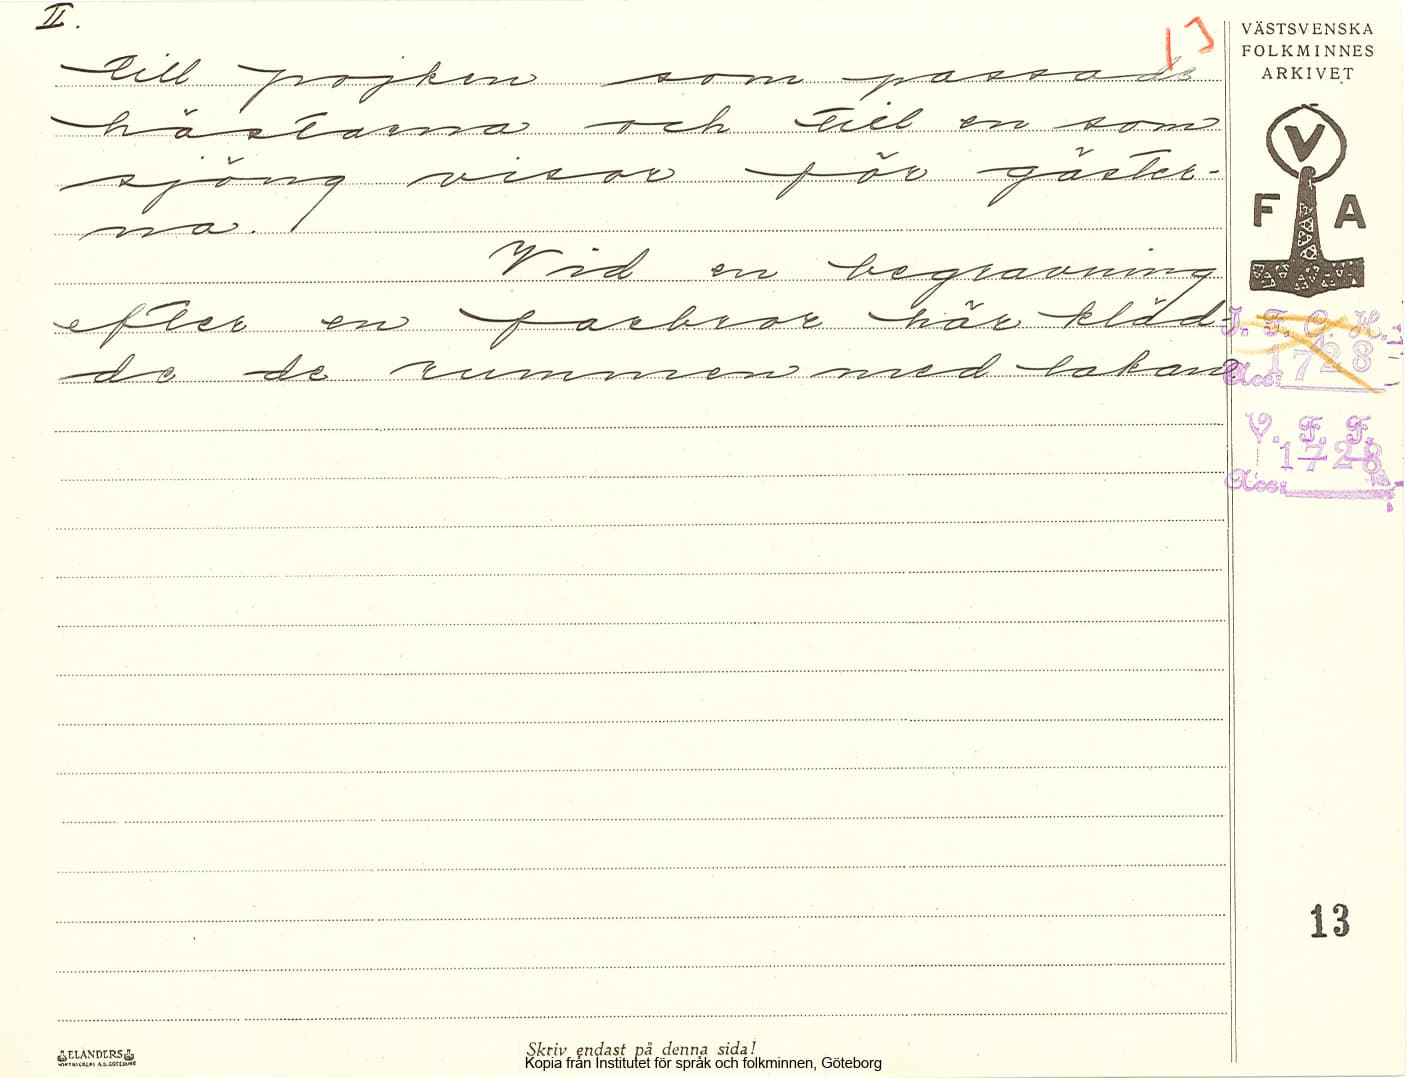 II.
till pojken som passade
hästarna och till en som
sjöng visor för gäster-
na.
Vid en begravning
efter en farbror här kläd-
de de rummen med lakan
VÄSTSVENSKA
FOLKMINNES
ARKIVET
V
F A
I. F. G. H.
1728
Acc:
V. F. F.
1728
Acc:
13
ELANDERS
Skriv endast på denna sida!
Kopia från Institutet för språk och folkminnen, Göteborg